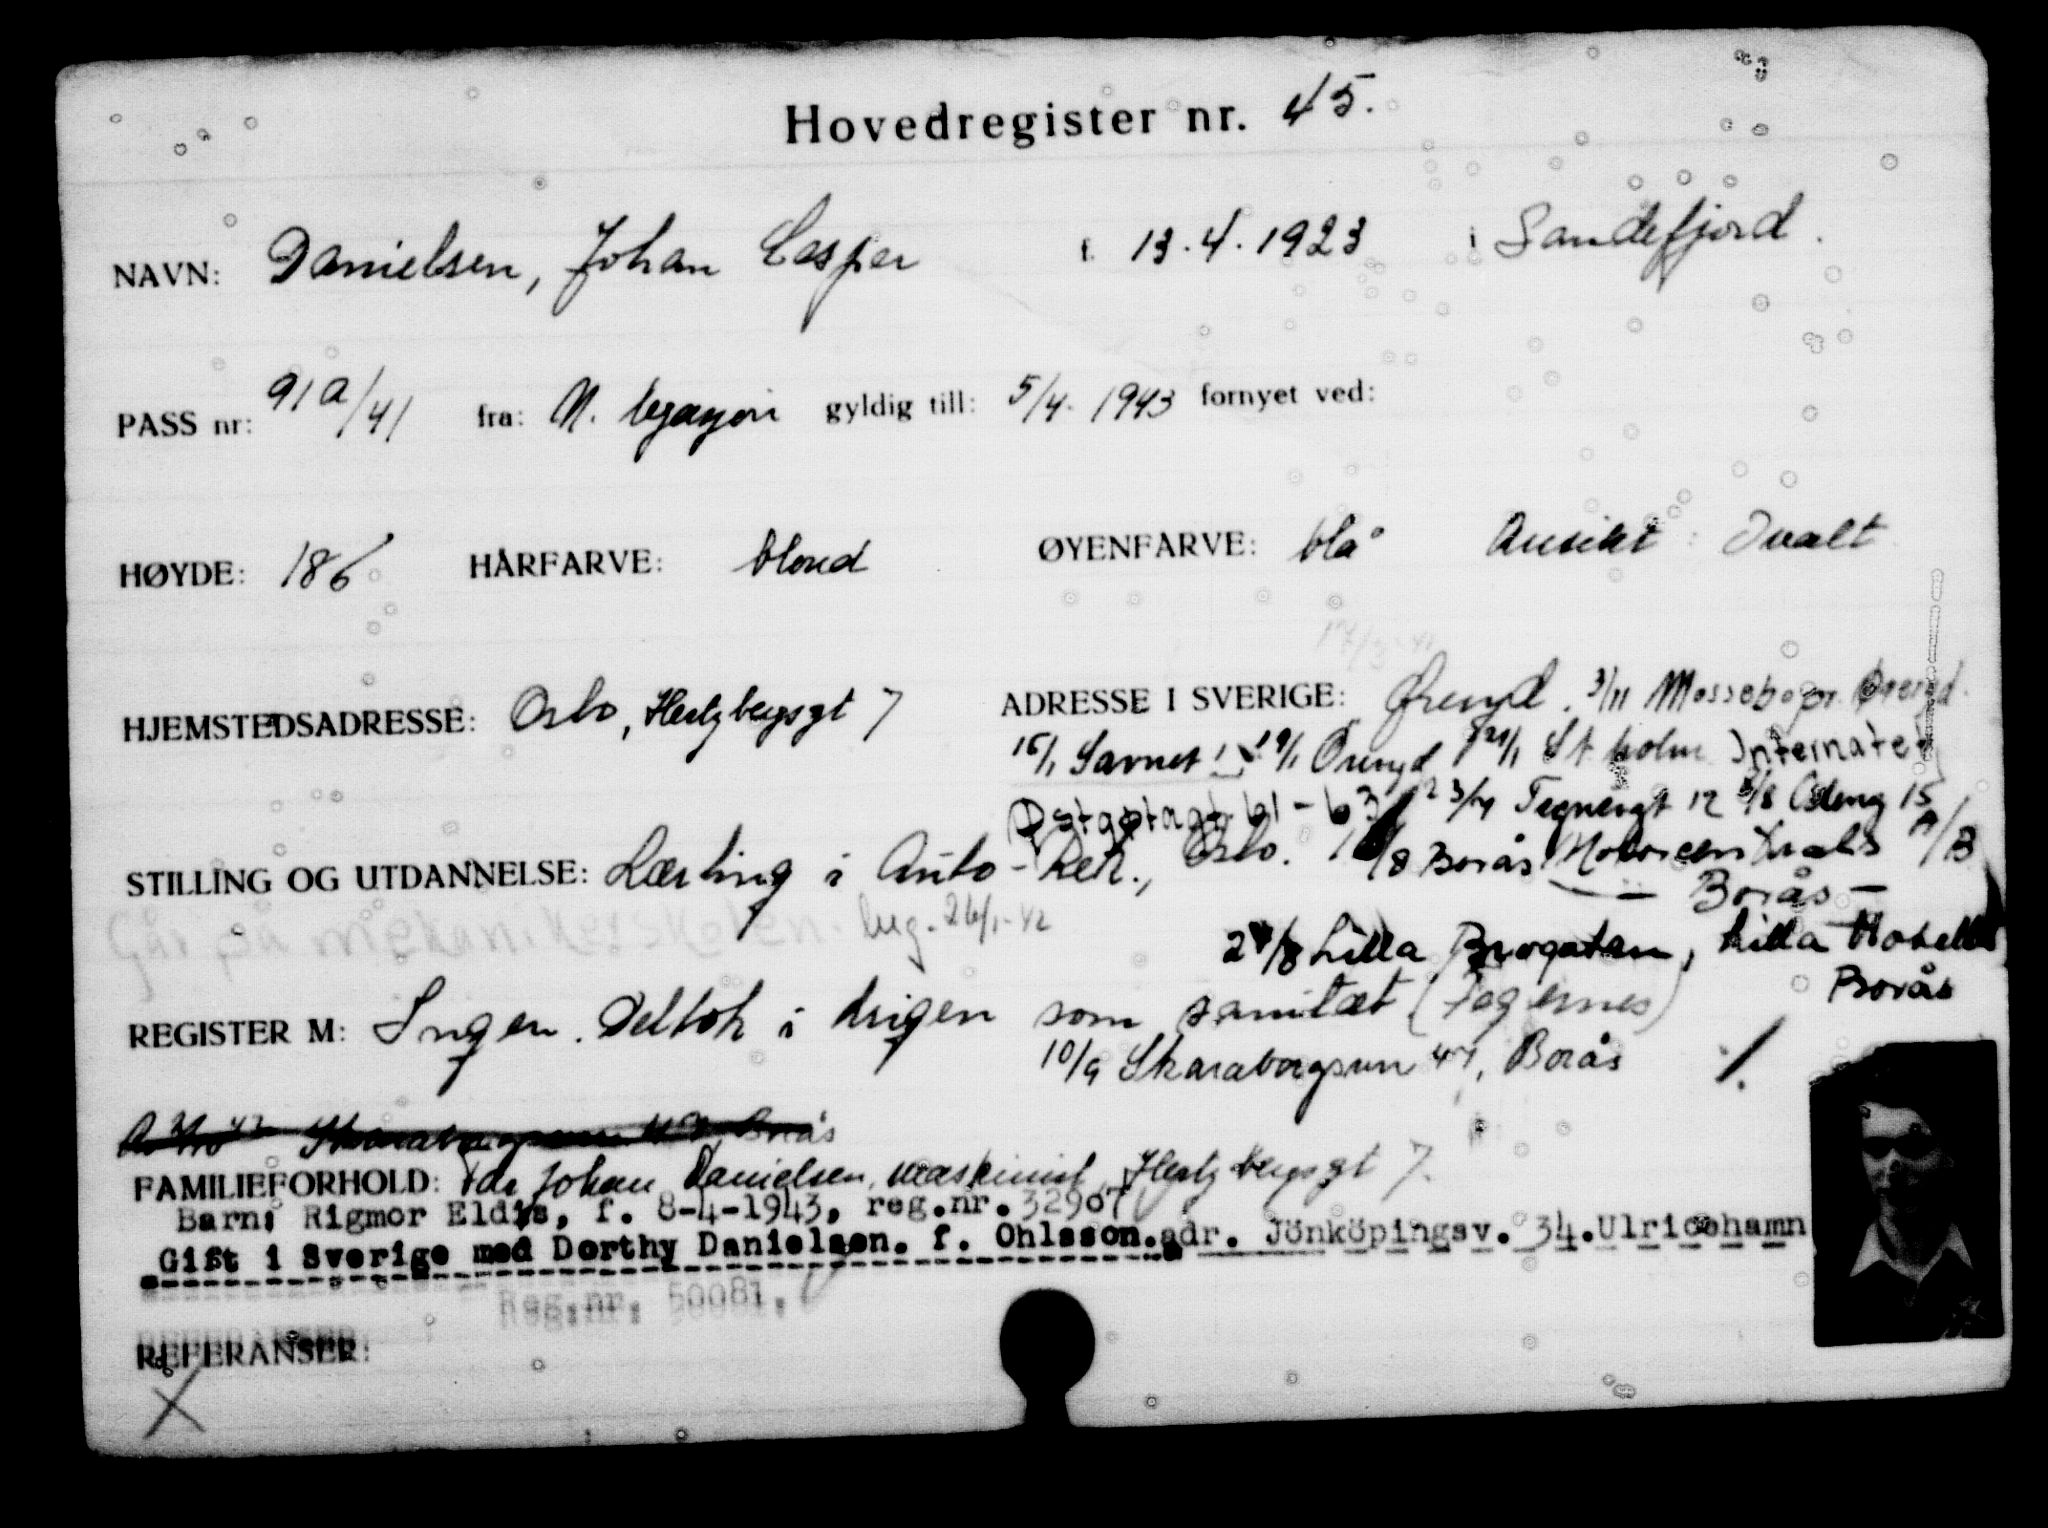 Hovedregister nr. 45.
NAVN: Danielsen, Johan Casper f. 13.4.1923 i Sandefjord.
PASS nr: 91a/41 fra: N. legasjon gyldig till: 5/4. 1943 fornyet ved:
HØYDE: 186 HÅRFARVE: blond ØYENFARVE: blå Ansikt: Ovalt
HJEMSTEDSADRESSE: Oslo, Hertzbergsgt 7 ADRESSE I SVERIGE: Øreryd. 3/11 Mossebo pr. Øreryd.
15/1 Savnet 19/1 Öreryd 21/1 St.holm Internatet
Östgötagt. 61-63 23/4 Tegnergt 12 8/8 Odeng 15
STILLING OG UTDANNELSE: Lærling i Auto-Rek., Oslo. /8 Borås Motorcentrals A/B
Borås
Går på mekanikerskolen. beg. 26/1-42
24/8 Lilla Brogatan, Lilla Hotellet
Borås
REGISTER M: Ingen. Deltok i krigen som sanitæt (Fagernes)
10/9 Skaraborgsvn 47, Borås
Skaraborgsvn 47, Borås
FAMILIEFORHOLD: Far Johan Danielsen, maskinist, Hertzbergsgt 7.
Barn: Rigmor Eldis, f. 8-4-1943, reg.nr. 32907
Gift i Sverige med Dorthy Danielsen. f. Ohlsson. adr. Jönköpingsv. 34. Ulricehamn
Reg.nr. 50081.
REFERANSER:
X